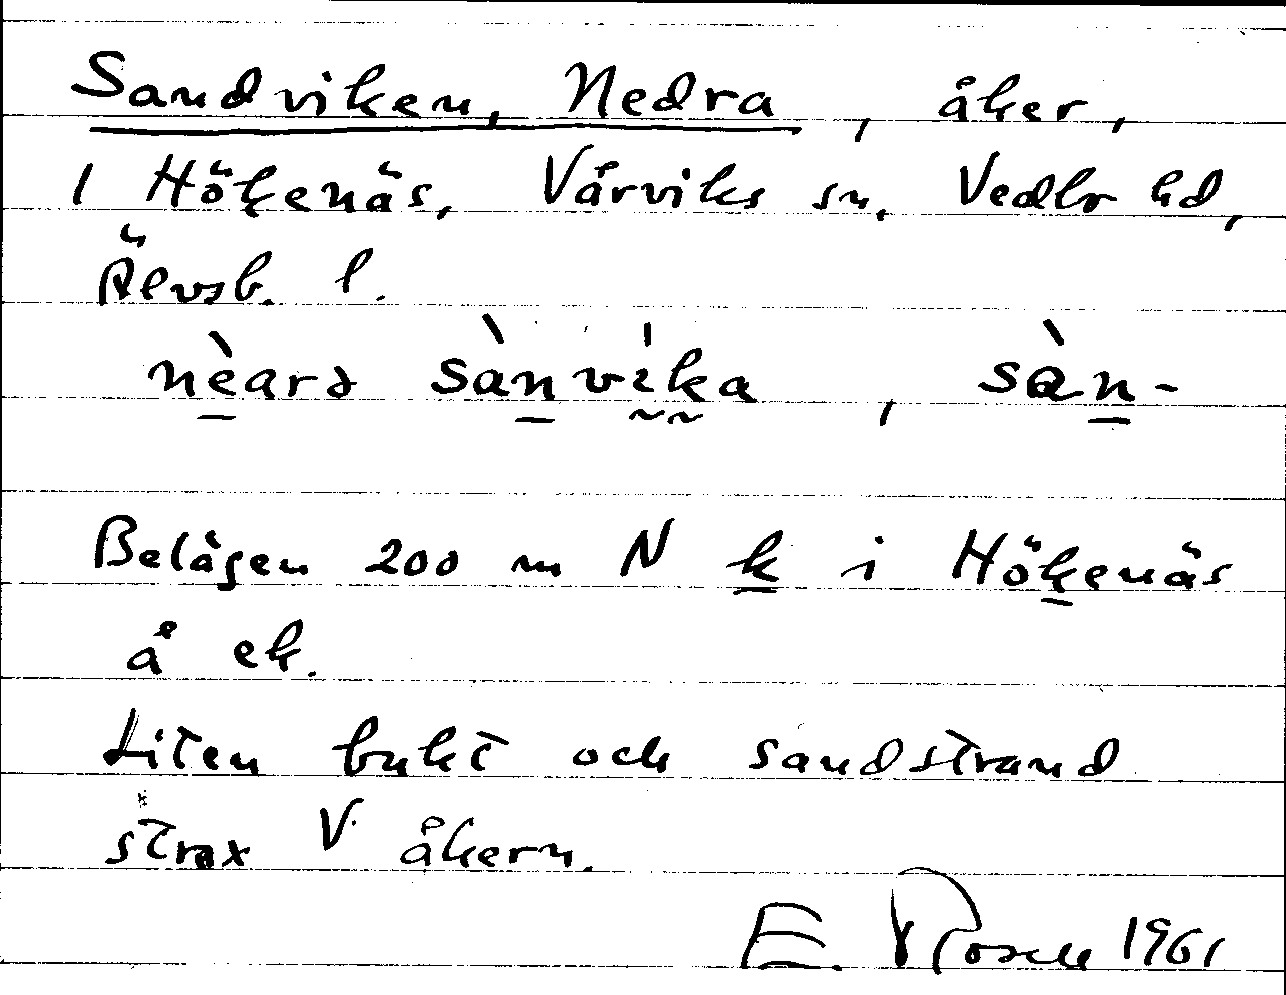 Sandviken, Nedra, åker,
i Hökenäs, Vårviks sn. Vedbo hd,
Älvsb. l.
nèarə sànvìka, sàn-
Belägen 200 m N k i Hökenäs
å ek.
Liten bukt och sandstrand
strax V åkern.
E. Rosell 1961